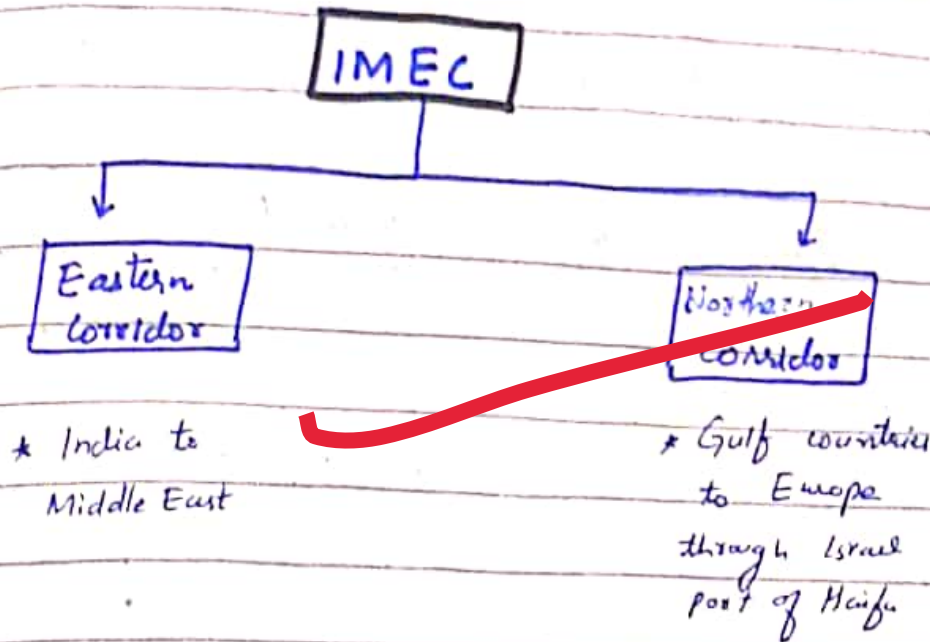 IMEC
Eastern
Corridor
Northern
Corridor
* India to
Middle East
* Gulf countries
to Europe
through Israel
port of Haifa